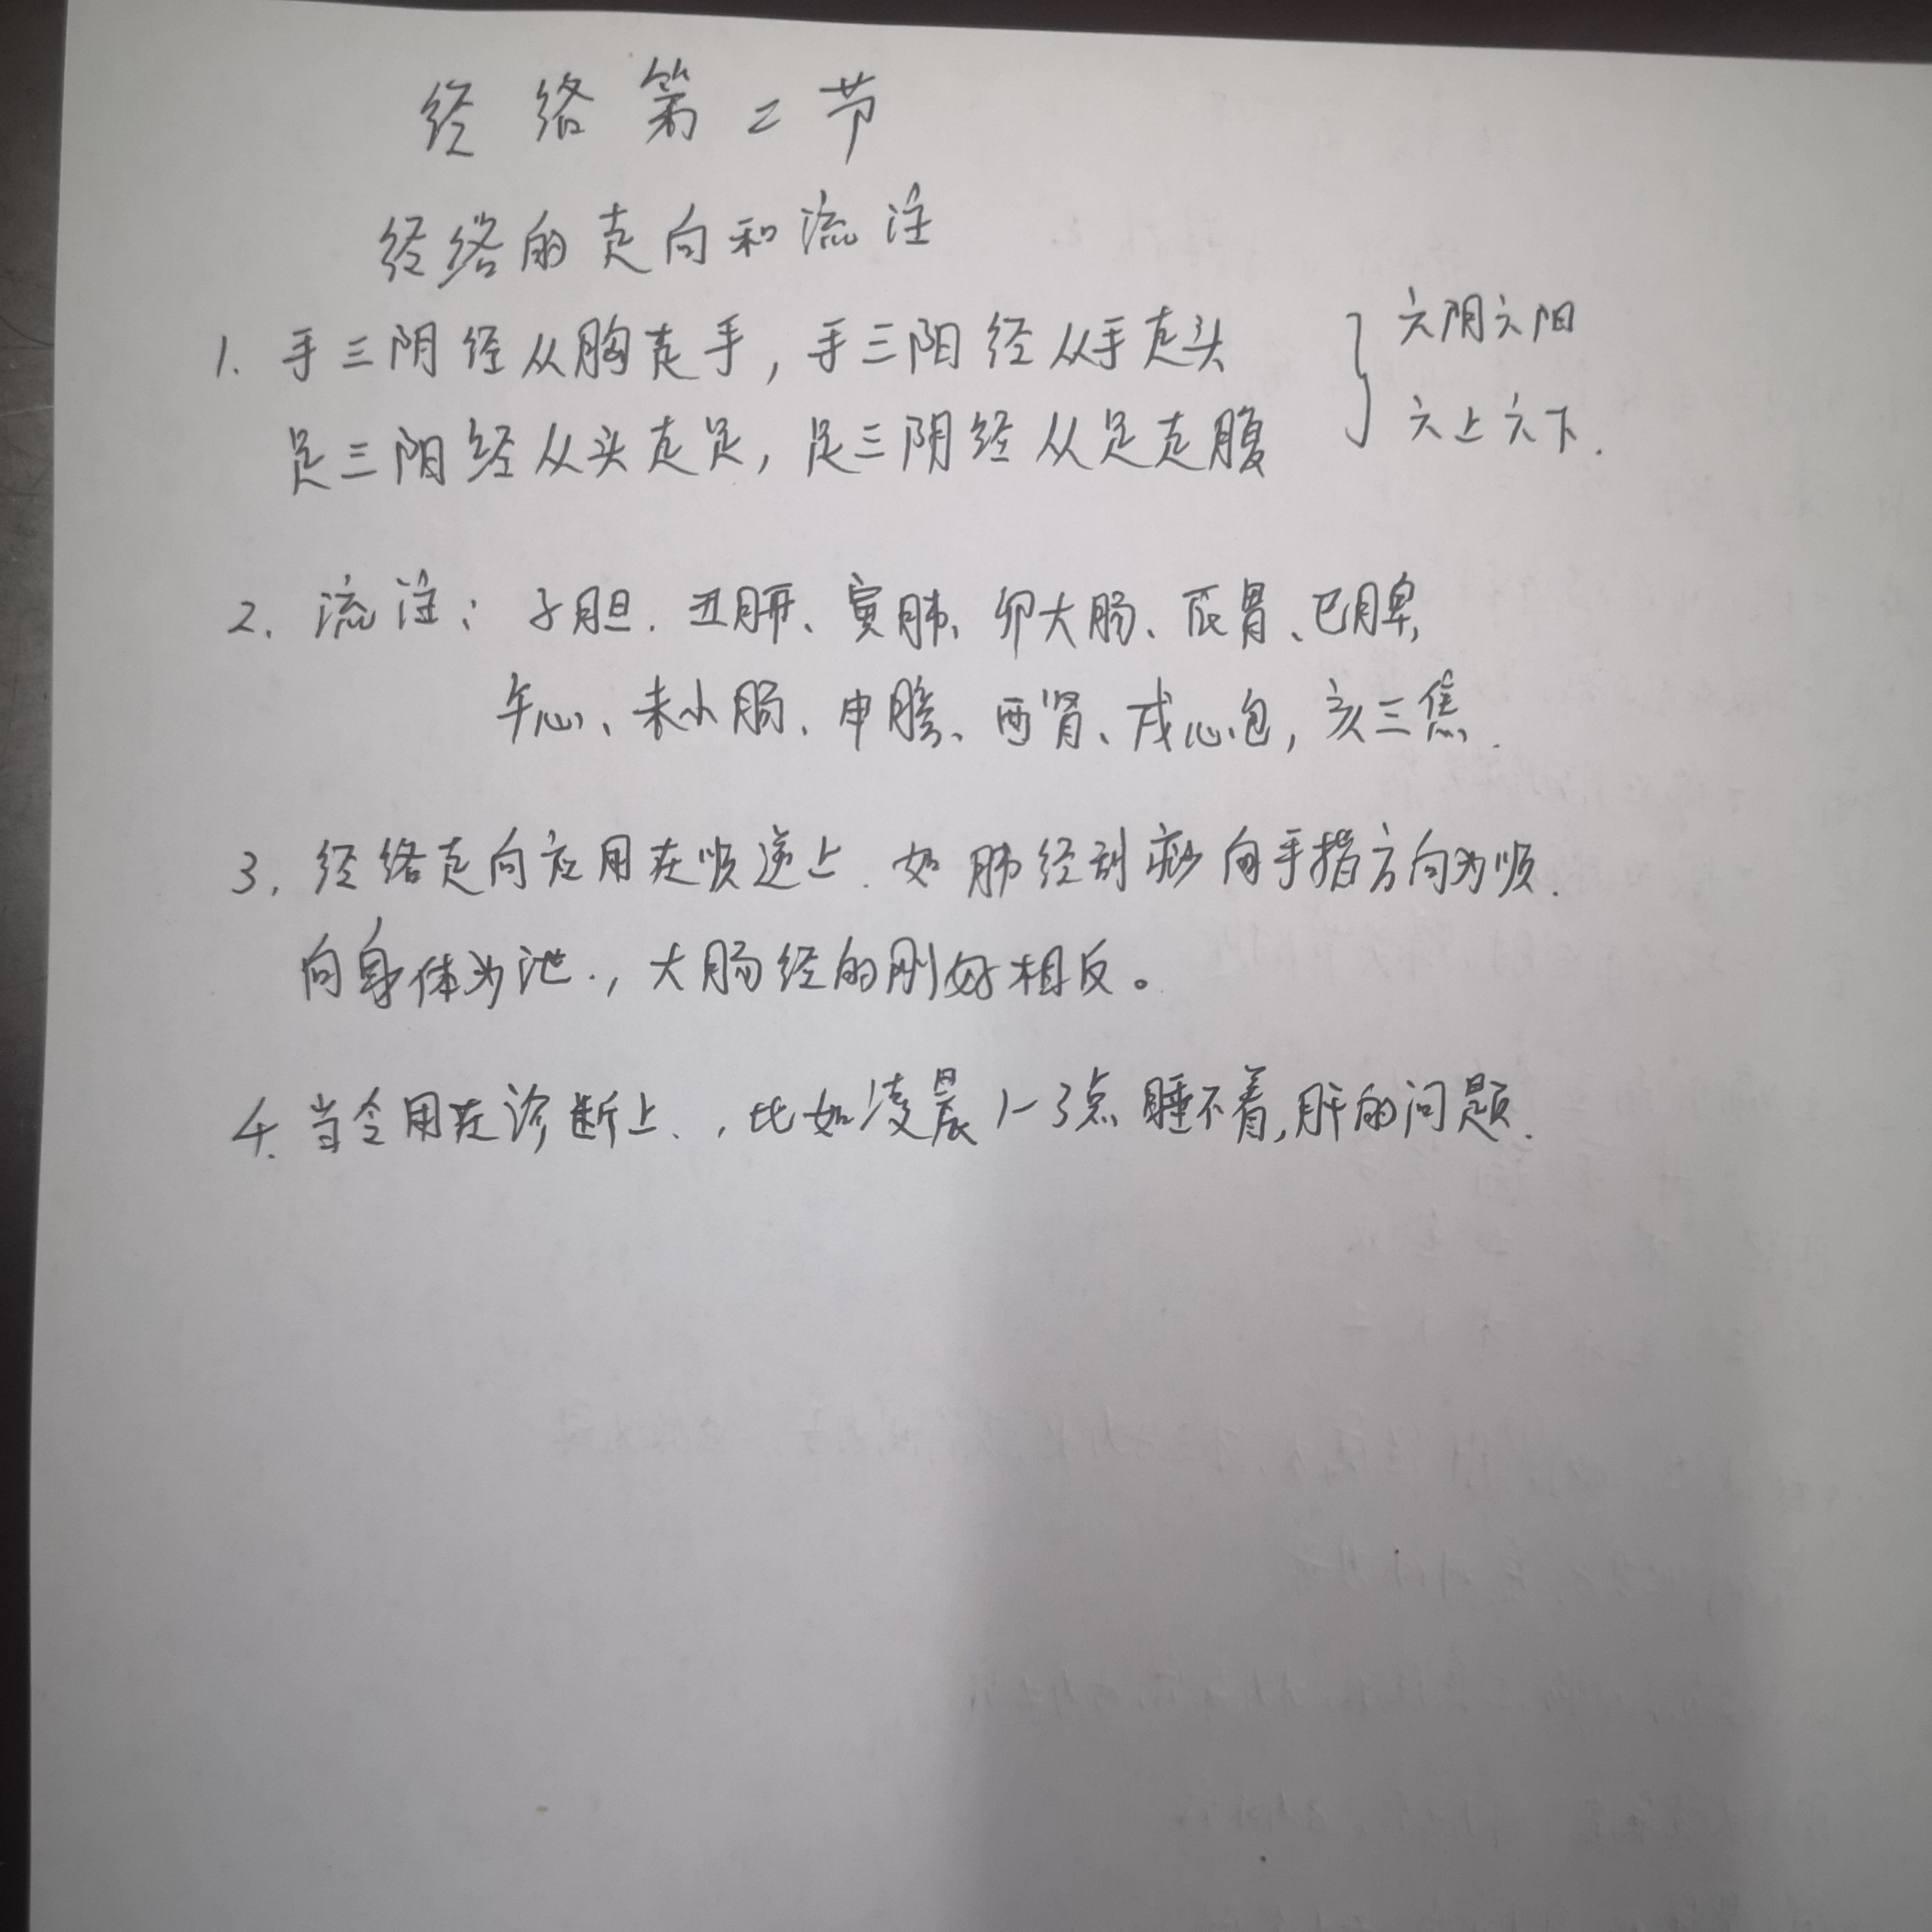 经络第二节
经络的走向和流注
1. 手三阴经从胸走手，手三阳经从手走头
足三阳经从头走足，足三阴经从足走腹
六阴六阳
六上六下.
2. 流注：子胆. 丑肝、寅肺、卯大肠、辰胃、巳脾，
午心、未小肠、申膀、酉肾、戌心包，亥三焦.
3. 经络走向应用在顺逆上. 如肺经刮痧向手指方向为顺.
向身体为泄.，大肠经的刚好相反。
4. 当令用在诊断上.，比如凌晨1-3点睡不着，肝的问题.